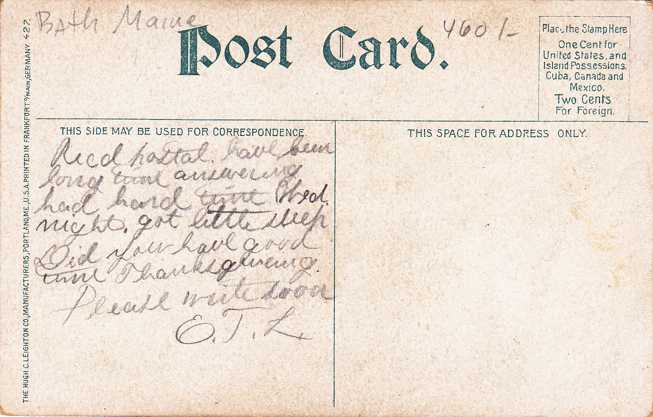 Bath Maine
4601-
Post Card.
Place the Stamp Here
One Cent for
United States, and
Island Possessions,
Cuba, Canada and
Mexico.
Two Cents
For Foreign.
THIS SIDE MAY BE USED FOR CORRESPONDENCE.
THIS SPACE FOR ADDRESS ONLY.
Recd postal. have been
long time answering
had hard time Wed.
night, got little sleep
Did you have good
time Thanksgiving.
Please write soon
E. T. L.
THE HUGH C. LEIGHTON CO., MANUFACTURERS, PORTLAND, ME., U.S.A. PRINTED IN FRANKFORT Main, GERMANY 427.